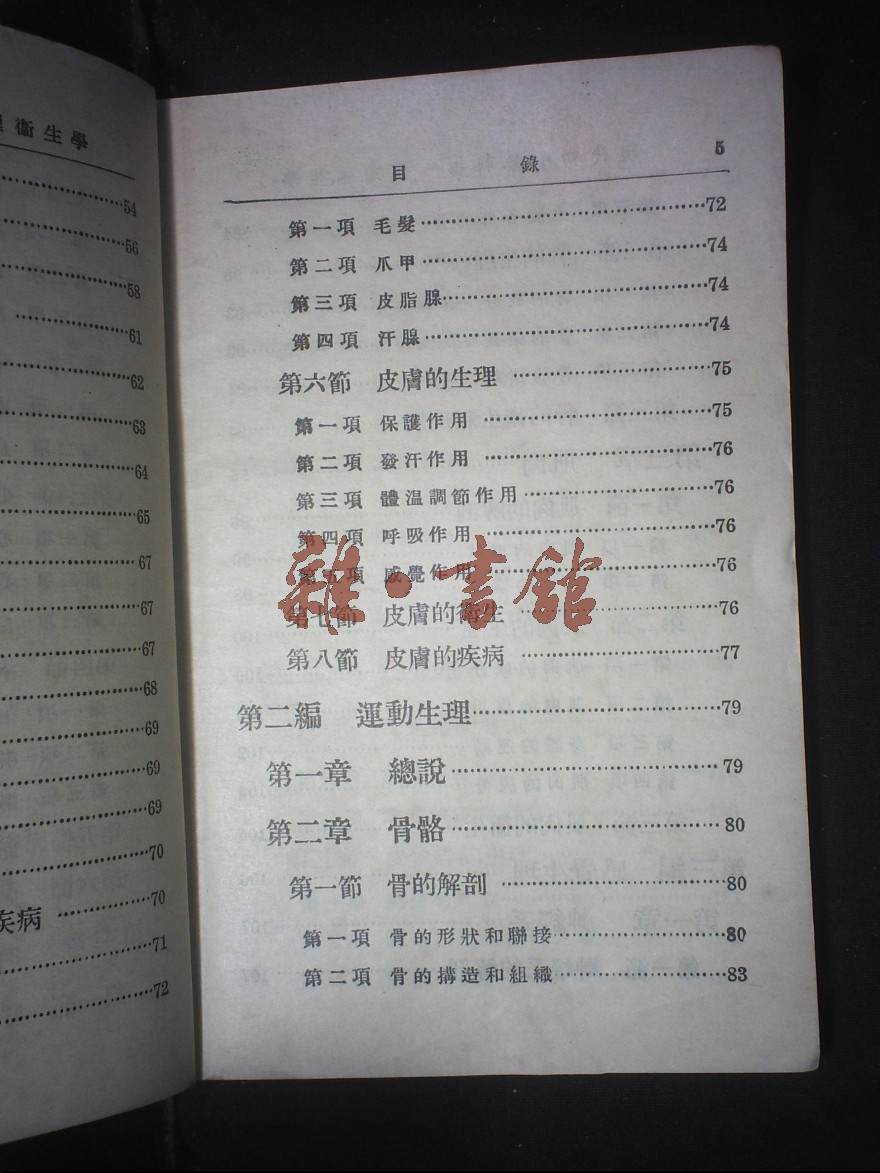 衞生學
54
56
58
61
62
63
64
65
67
67
67
68
69
69
69
70
疾病 70
71
72
目錄 5
第一項 毛髮 72
第二項 爪甲 74
第三項 皮脂腺 74
第四項 汗腺 74
第六節 皮膚的生理 75
第一項 保護作用 75
第二項 發汗作用 76
第三項 體温調節作用 76
第四項 呼吸作用 76
第五項 感覺作用 76
第七節 皮膚的衛生 76
第八節 皮膚的疾病 77
第二編 運動生理 79
第一章 總說 79
第二章 骨骼 80
第一節 骨的解剖 80
第一項 骨的形狀和聯接 80
第二項 骨的搆造和組織 83
雜·書館